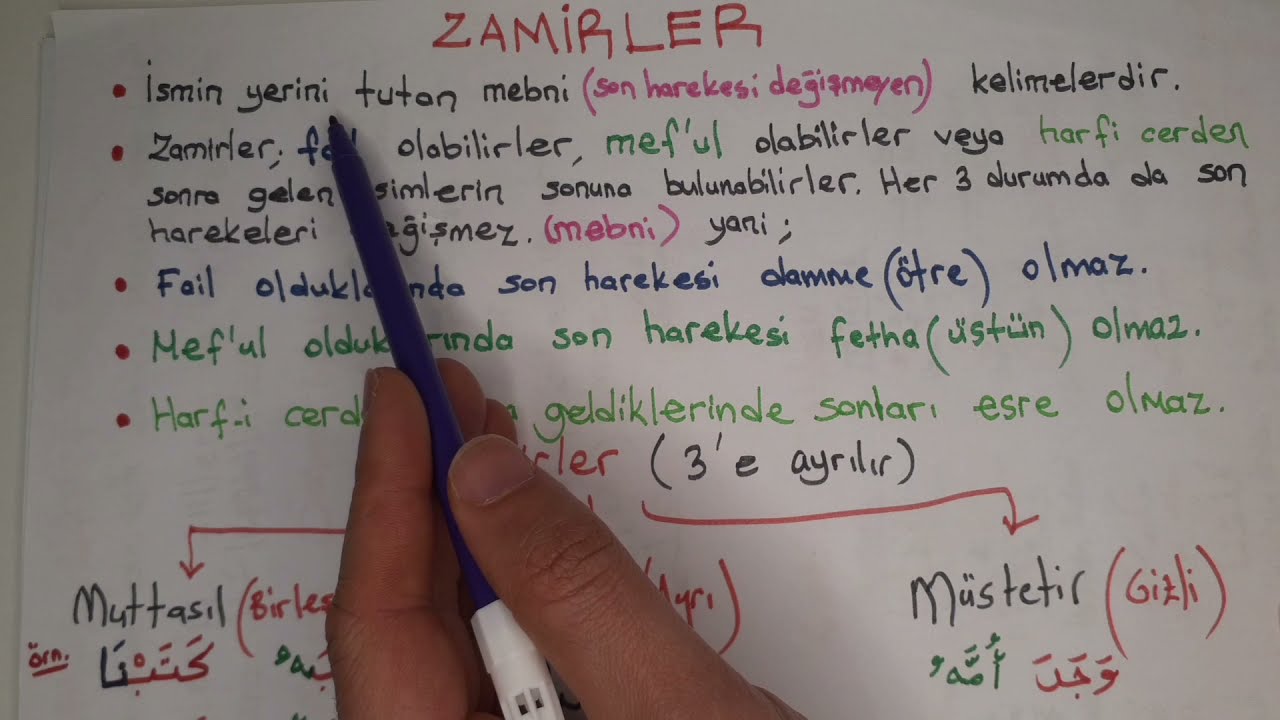 ZAMİRLER
• İsmin yerini tutan mebni (son harekesi değişmeyen) kelimelerdir.
• Zamirler; olabilirler, mef'ul olabilirler veya harfi cerden
sonra gelen isimlerin sonuna bulunabilirler. Her 3 durumda da son
harekeleri değişmez. (mebni) yani;
• Fail olduklarında son harekesi damme (ötre) olmaz.
• Mef'ul olduklarında son harekesi fetha (üstün) olmaz.
• Harf-i geldiklerinde sonları esre olmaz.
(3'e ayrılır)
Muttasıl Müstetir (Gizli)
örn. كَتَبْنَا وَجَدَ أُمَّهُ